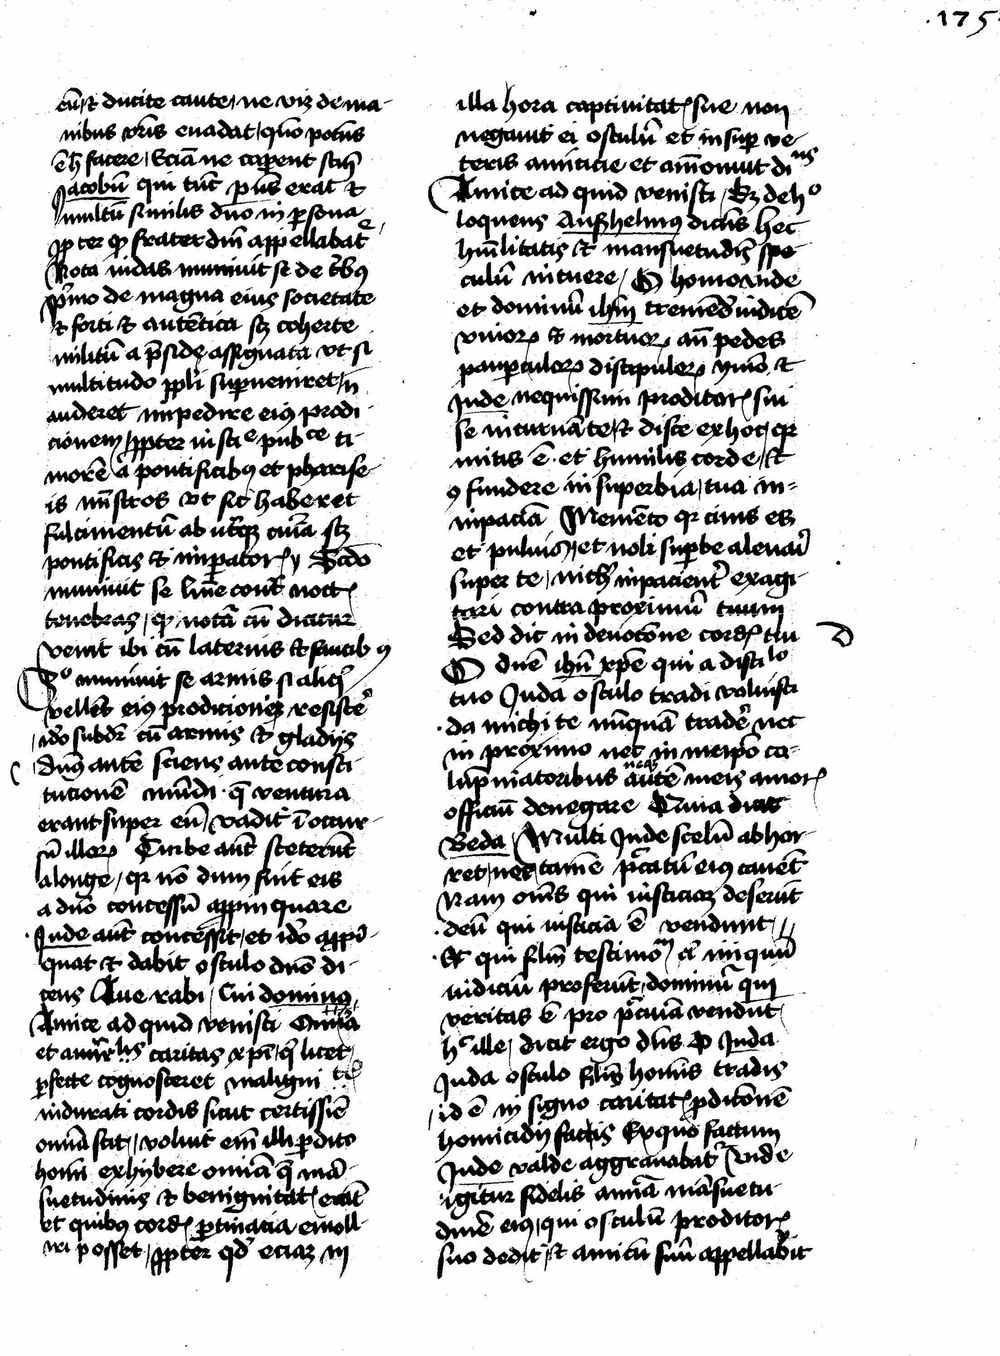 .175.
eū / et ducite caute / ne viz de ma-
nibus vr̄is euadat / quo potius
facere / Eciā ne caperent scm̄
Jacobū qui tūc p̄ns erat et
multū similis dn̄o in persona
ppter qd frater dn̄i appellabatr
Nota iudas muniuit se de tribꝯ
pͥmo de magna eius societate
et forti et autentica scꝫ coherte
militū a p̄side assignata vt si
multitudo ppl̄i superueniret / nō
auderet impedire eiꝯ prodi-
cionem / ppter iusticie pub̄ce ti-
morē a pontificibꝯ et pharise-
is mīstros vt sic haberet
fulcimentū ab vtraqꝫ curia scꝫ
pontificis et imperatoris Secdo
muniuit se lumine cont noctis
tenebras / qd notat cū dicitur
venit ibi cū laternis et facibꝯ
3º muniuit se armis si aliqs
vellet eiꝯ prodicioneꝫ resistere
ido subdit cū armis et gladijs
Dn̄s autē sciens ante consti-
tucionē mūdi q̄ ventura
erant super eū / vadit ī occur-
sū illorꝫ Turbe aūt steterūt
alonge / qr nō dum fuit eis
a dn̄o concessū appinquare
Jude aūt concessit / et ido appī-
quat et dabit osculo dn̄o di-
cens Aue rabi / Cui dominꝯ
Amice ad quid venisti
et caritas xpī / q̄ licet
perfecte cognosceret maligni
indurati cordis sicut certissie
omnia scit / voluit em̄ illi perdito
homī exhybere omīa q̄ mā-
suetudinis et benignitatis erāt
et quibꝯ cordis pertinacia emoll-
iri posset / ppter qd eciaꝫ in
illa hora captiuitatis sue non
negauit ei osculū et insuper ve-
teris amicicie et āmonuit dicens
Amice ad quid venisti / Et de hº
loquens Anshelmꝯ dicens hec
huīlitatis et mansuetudīs spe-
culū intuere / O homo vide
et dominū ihm̄ tremendū iudicē
viuorꝫ et mortuorꝫ an̄ pedes
paupercularꝫ discipulorꝫ ymo et
Jude nequissimi proditoris sui
se incuruāte / et disce ex hoc qr
mitis ē et humilis corde / et
9fundere in superbia / tua in-
inpaciā Memēto qr cinis es
et puluis / et noli superbe aleuari
super te / nich̄ inpacienter exagi-
tari contra proximū tuum
Sed dic in deuocōne cordis tui
O dn̄e ihū xpe qui a discilo
tuo Juda osculo tradi voluisti
da michi te nūquā tradere nec
in proximo nec in meipō ca-
lūpniatoribus autē meis amoris
officiū denegare Vnia dicit
Beda / Multi Jude scelus abhor-
ret / nec tamē pccatū eiꝯ cauēt
Nam om̄s qui iusticiaꝫ deserūt
deū qui iusticia ē vendunt //
Et qui fl̄m testimōm cō iniquū
iudiciū proferūt / dominū qui
veritas ē pro pccunia vendūt
hc ille / dicit ergo dn̄s O Juda
Juda osculo filiū homīs tradis
/ id ē in signo caritatis pdicōnē
homicidij facis Ex quo factum
Jude valde aggrauabatr Vnde
igitur fidelis anīa māsuetu-
dinē eiꝯ / qui osculū proditoris
suo dedit / et amicū suū appellabit